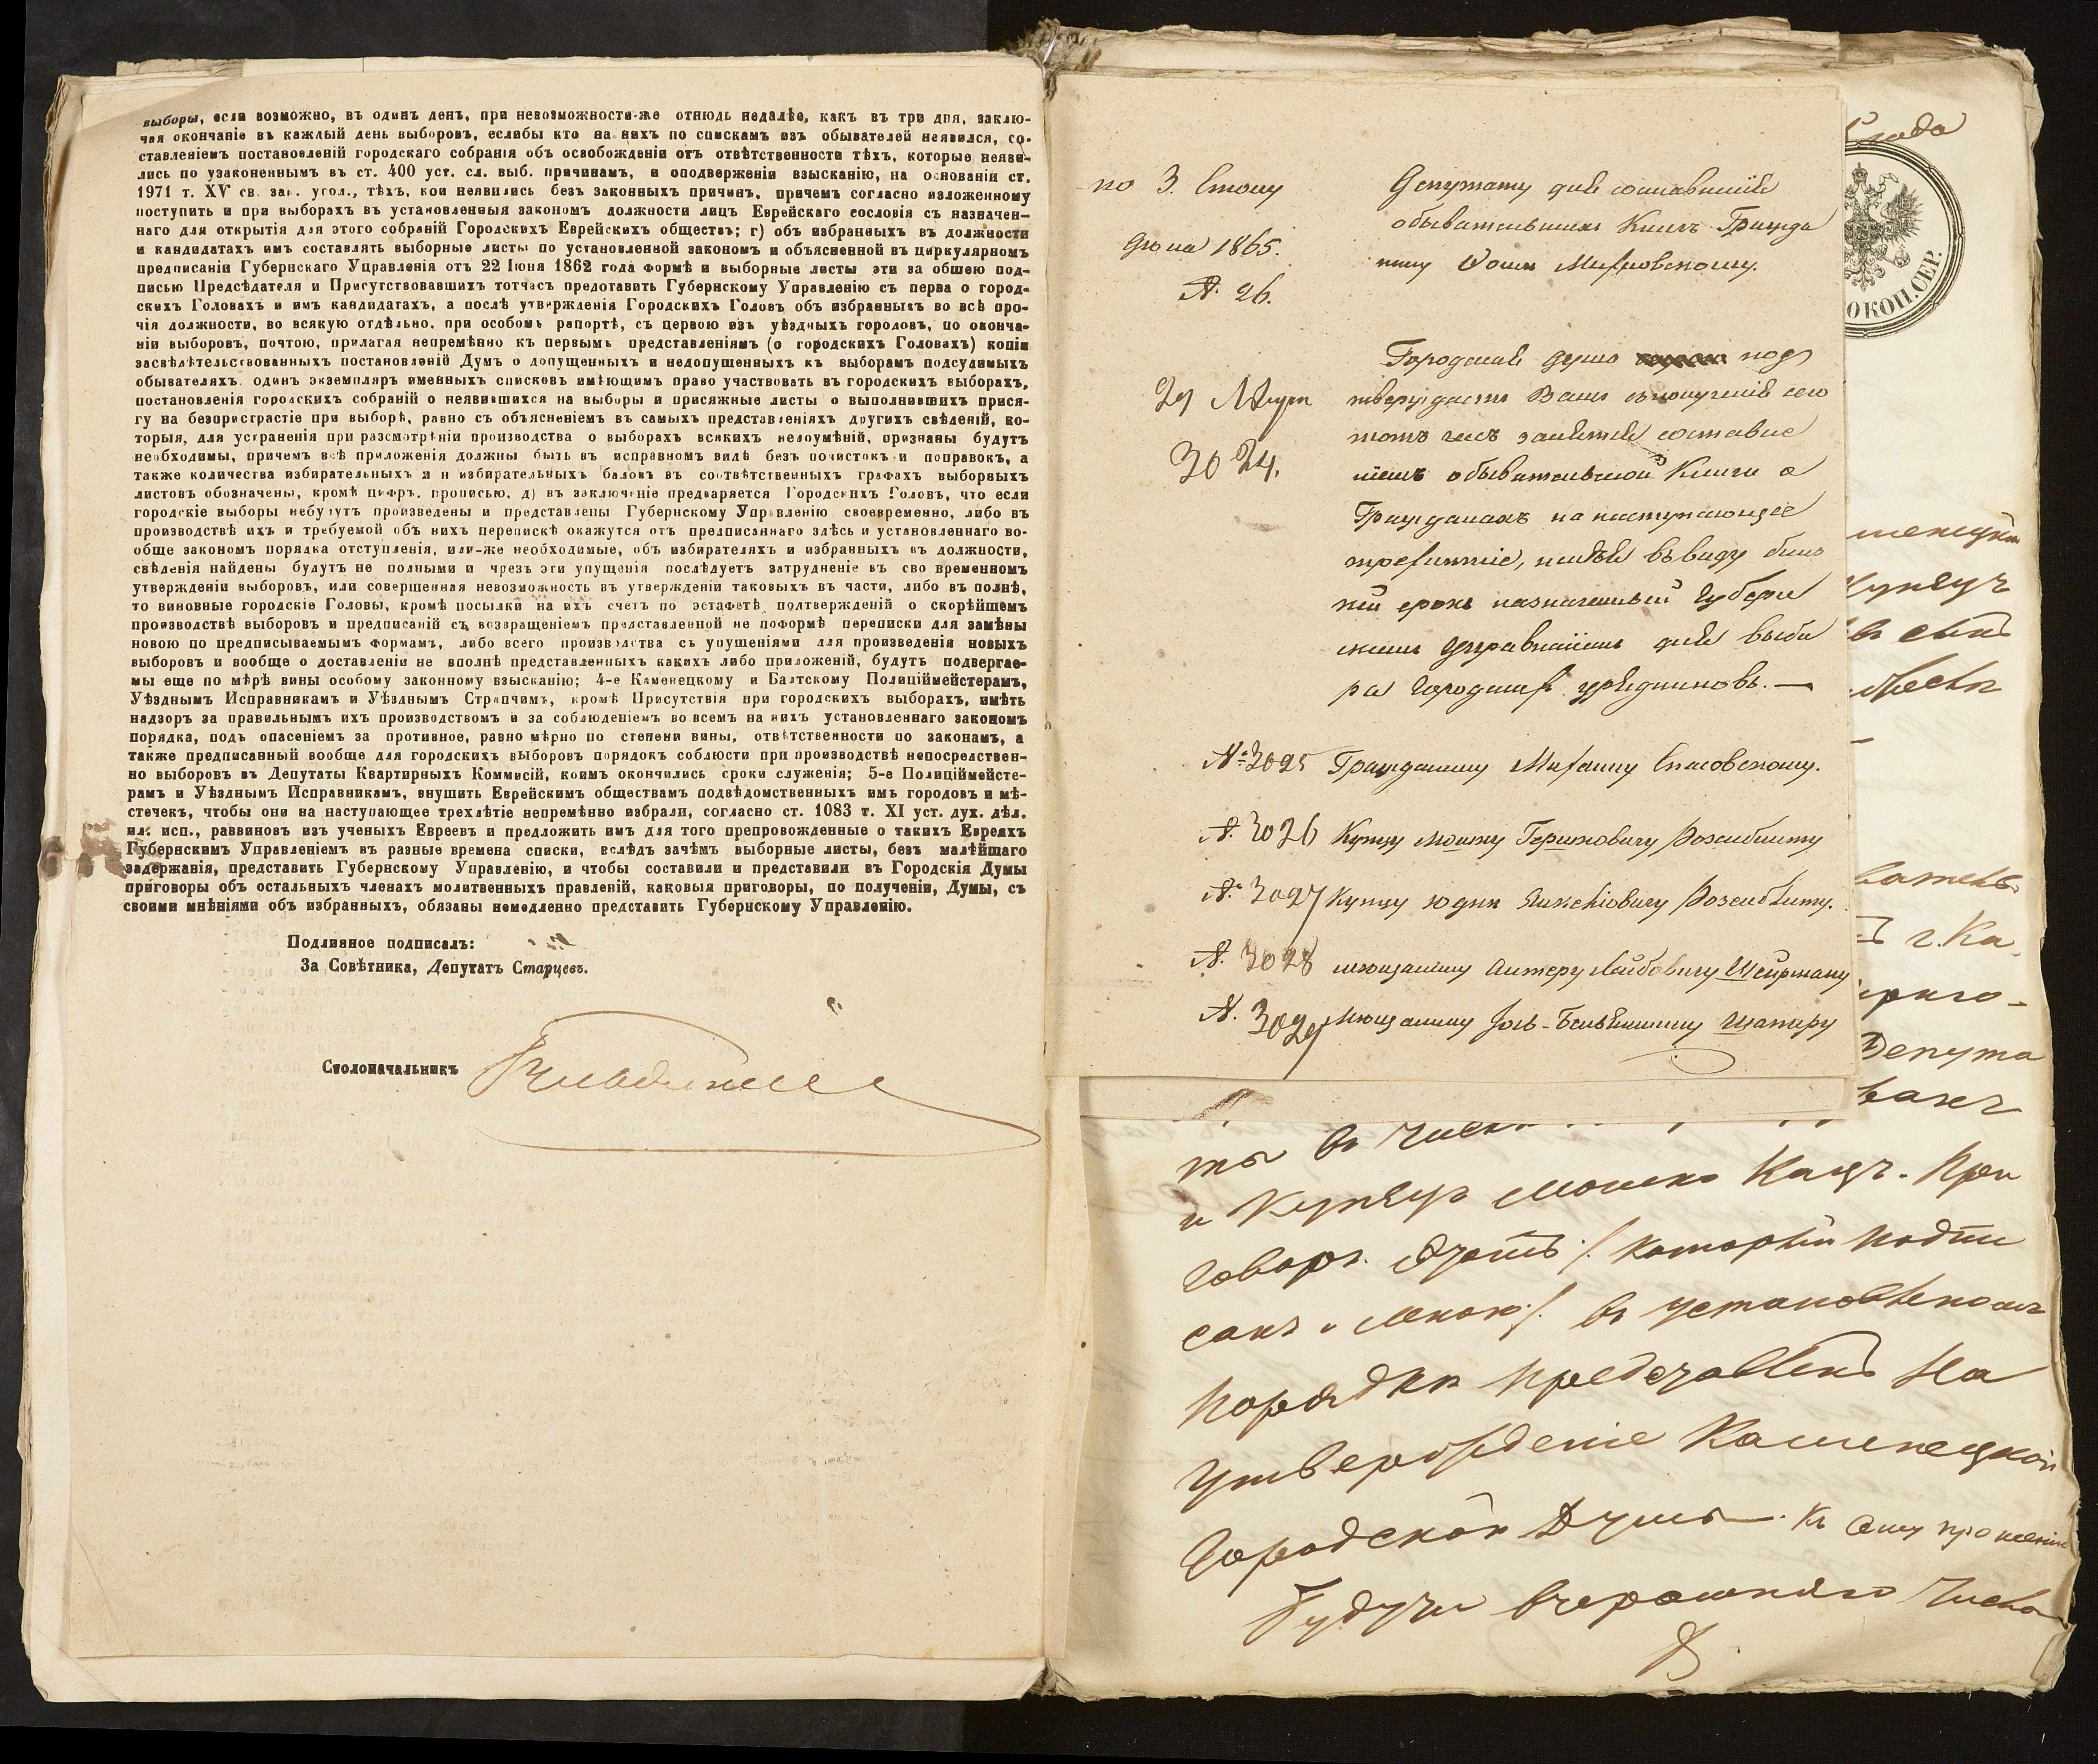 выборы, если возможно, въ одинъ день, при невозможности-же отнюдь недалѣе, какъ въ три дня, заклю-
чая окончаніе въ каждый день выборовъ, еслибы кто на нихъ по спискамъ изъ обывателей неявился, со-
ставленіемъ постановленій городскаго собранія объ освобожденіи отъ отвѣтственности тѣхъ, которые неяви-
лись по узаконеннымъ въ ст. 400 уст. сл. выб. причинамъ, и оподверженіи взысканію, на основаніи ст.
1971 т. XV св. зак. угол., тѣхъ, кои неявились безъ законныхъ причинъ, причемъ согласно изложенному
поступить и при выборахъ въ установленныя закономъ должности лицъ Еврейскаго сословія съ назначен-
наго для открытія для этого собраній Городскихъ Еврейскихъ обществъ; г) объ избранныхъ въ должности
и кандидатахъ имъ составлять выборные листы по установленной закономъ и объясненной въ циркулярномъ
предписаніи Губернскаго Управленія отъ 22 Іюня 1862 года формѣ и выборные листы эти за общею под-
писью Предсѣдателя и Присутствовавшихъ тотчасъ предотавить Губернскому Управленію съ перва о город-
скихъ Головахъ и имъ кандидатахъ, а послѣ утвержденія Городскихъ Головъ объ избранныхъ во всѣ про-
чія должности, во всякую отдѣльно, при особомъ рапортѣ, съ первою изъ уѣздныхъ городовъ, по оконча-
ніи выборовъ, почтою, прилагая непремѣнно къ первымъ представленіямъ (о городскихъ Головахъ) копіи
засвѣдѣтельствованныхъ постановленій Думъ о допущенныхъ и недопущенныхъ къ выборамъ подсудимыхъ
обывателяхъ, одинъ экземпляръ именныхъ списковъ имѣющимъ право участвовать въ городскихъ выборахъ,
постановленія городскихъ собраній о неявившихся на выборы и присяжные листы о выполнившихъ прися-
гу на безпристрастіе при выборѣ, равно съ объясненіемъ въ самыхъ представленіяхъ другихъ свѣденій, ко-
торыя, для устраненія при разсмотрѣніи производства о выборахъ всякихъ недоумѣній, признаны будутъ
необходимы, причемъ всѣ приложенія должны быть въ исправномъ видѣ безъ почистокъ и поправокъ, а
также количества избирательныхъ и н избирательныхъ баловъ въ соотвѣтственныхъ графахъ выборныхъ
листовъ обозначены, кромѣ цифръ, прописью, д) въ заключеніе предваряется Городскихъ Головъ, что если
городскіе выборы небудутъ произведены и представлены Губернскому Управленію своевременно, либо въ
производствѣ ихъ и требуемой объ нихъ перепискѣ окажутся отъ предписаннаго здѣсь и установленнаго во-
обще закономъ порядка отступленія, или-же необходимые, объ избирателяхъ и избранныхъ въ должности,
свѣденія найдены будутъ не полными и чрезъ эти упущенія послѣдуетъ затрудненіе въ сво временномъ
утвержденіи выборовъ, или совершенная невозможность въ утвержденіи таковыхъ въ части, либо въ полнѣ,
то виновные городскіе Головы, кромѣ посылки на ихъ счетъ по эстафетѣ подтвержденій о скорѣйшемъ
производствѣ выборовъ и предписаній съ возвращеніемъ представленной не поформѣ переписки для замѣны
новою по предписываемымъ формамъ, либо всего производства съ упущеніями для произведенія новыхъ
выборовъ и вообще о доставленіи не вполнѣ представленныхъ какихъ либо приложеній, будутъ подвергае-
мы еще по мѣрѣ вины особому законному взысканію; 4-е Каменецкому и Балтскому Полиціймейстерамъ,
Уѣзднымъ Исправникамъ и Уѣзднымъ Стряпчимъ, кромѣ Присутствія при городскихъ выборахъ, имѣть
надзоръ за правильнымъ ихъ производствомъ и за соблюденіемъ во всемъ на нихъ установленнаго закономъ
порядка, подъ опасеніемъ за противное, равно мѣрно по степени вины, отвѣтственности по законамъ, а
также предписанный вообще для городскихъ выборовъ порядокъ соблюсти при производствѣ непосредствен-
но выборовъ въ Депутаты Квартирныхъ Коммисій, коимъ окончились сроки служенія; 5-е Полиціймейсте-
рамъ и Уѣзднымъ Исправникамъ, внушить Еврейскимъ обществамъ подвѣдомственныхъ имъ городовъ и мѣ-
стечекъ, чтобы они на наступающее трехлѣтіе непремѣнно избрали, согласно ст. 1083 т. XI уст. дух. дѣл.
ин. исп., раввиновъ изъ ученыхъ Евреевъ и предложить имъ для того препровожденные о такихъ Евреяхъ
Губернскимъ Управленіемъ въ разные времена списки, вслѣдъ зачѣмъ выборные листы, безъ малѣйшаго
задержанія, представить Губернскому Управленію, и чтобы составили и представили въ Городскія Думы
приговоры объ остальныхъ членахъ молитвенныхъ правленій, каковыя приговоры, по полученіи, Думы, съ
своими мнѣніями объ избранныхъ, обязаны немедленно представить Губернскому Управленію.
Подлинное подписалъ:
За Совѣтника, Депутатъ Старцевъ.
Столоначальникъ
по 3. Столу
Іюна 1865.
№ 26.
29
3024.
Депутату для составленія
обывательских Книгъ Гражда
нину
Городская Дума подъ
тверждаетъ Вамъ
тотъ часъ заняться составле
ніемъ обывательской Книги о
Гражданахъ на наступающее
трехлѣтіе, имѣя въ виду близ
кій срокъ назначенный Губерн
скимъ Управленіемъ для выбо
ра Городских урядниковъ. —
№ 3025 Гражданину Михаилу Спасовскому.
№ 3026 Купцу Мошку Гершковичу Розенблиту
№ 3027 Купцу Юдки Розенблиту.
№ 3028 мещанину Лейбовичу Шейрману
№ 3029 Мещанину Шапиру
года
ОКОП. СЕР.
Купецъ
г. Ка
Депута
ты въ
и Купецъ Мошко Кацъ. При
говоръ этотъ /: который подпи
санъ и мною :/ въ установленомъ
порядки представленъ на
утвержденіе Каменецкой
Городской Думы. Къ сему прошенію
Будучи вчерашняго числа